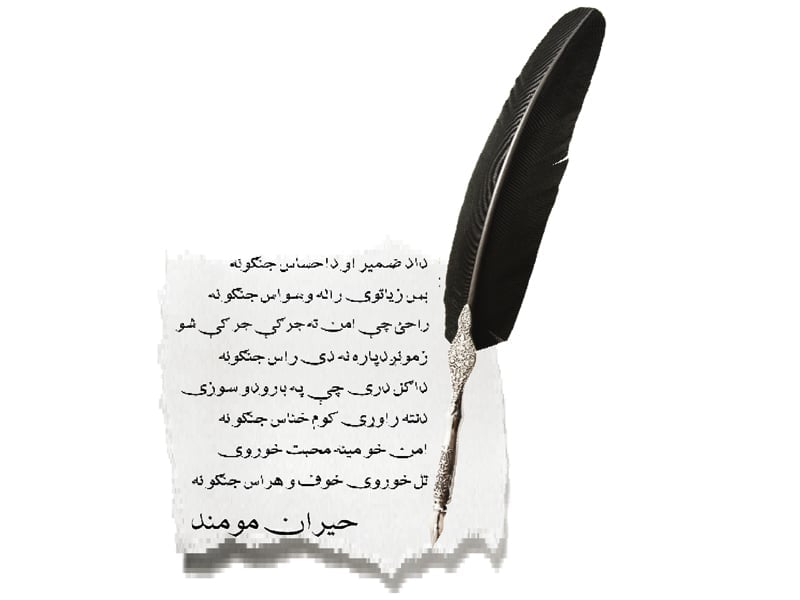 داد ضمیر او د احساس جنګونه
بس زیاتوی راله وسواس جنګونه
راځئ چې امن ته جرګې جرګې شو
زمونږ دپاره نه دی راس جنګونه
دا ګل دری چې په بارودو سوزی
دنته راوړی کوم خناس جنګونه
امن خو مینه محبت خوروی
تل خوروی خوف و هراس جنګونه
حیران مومند